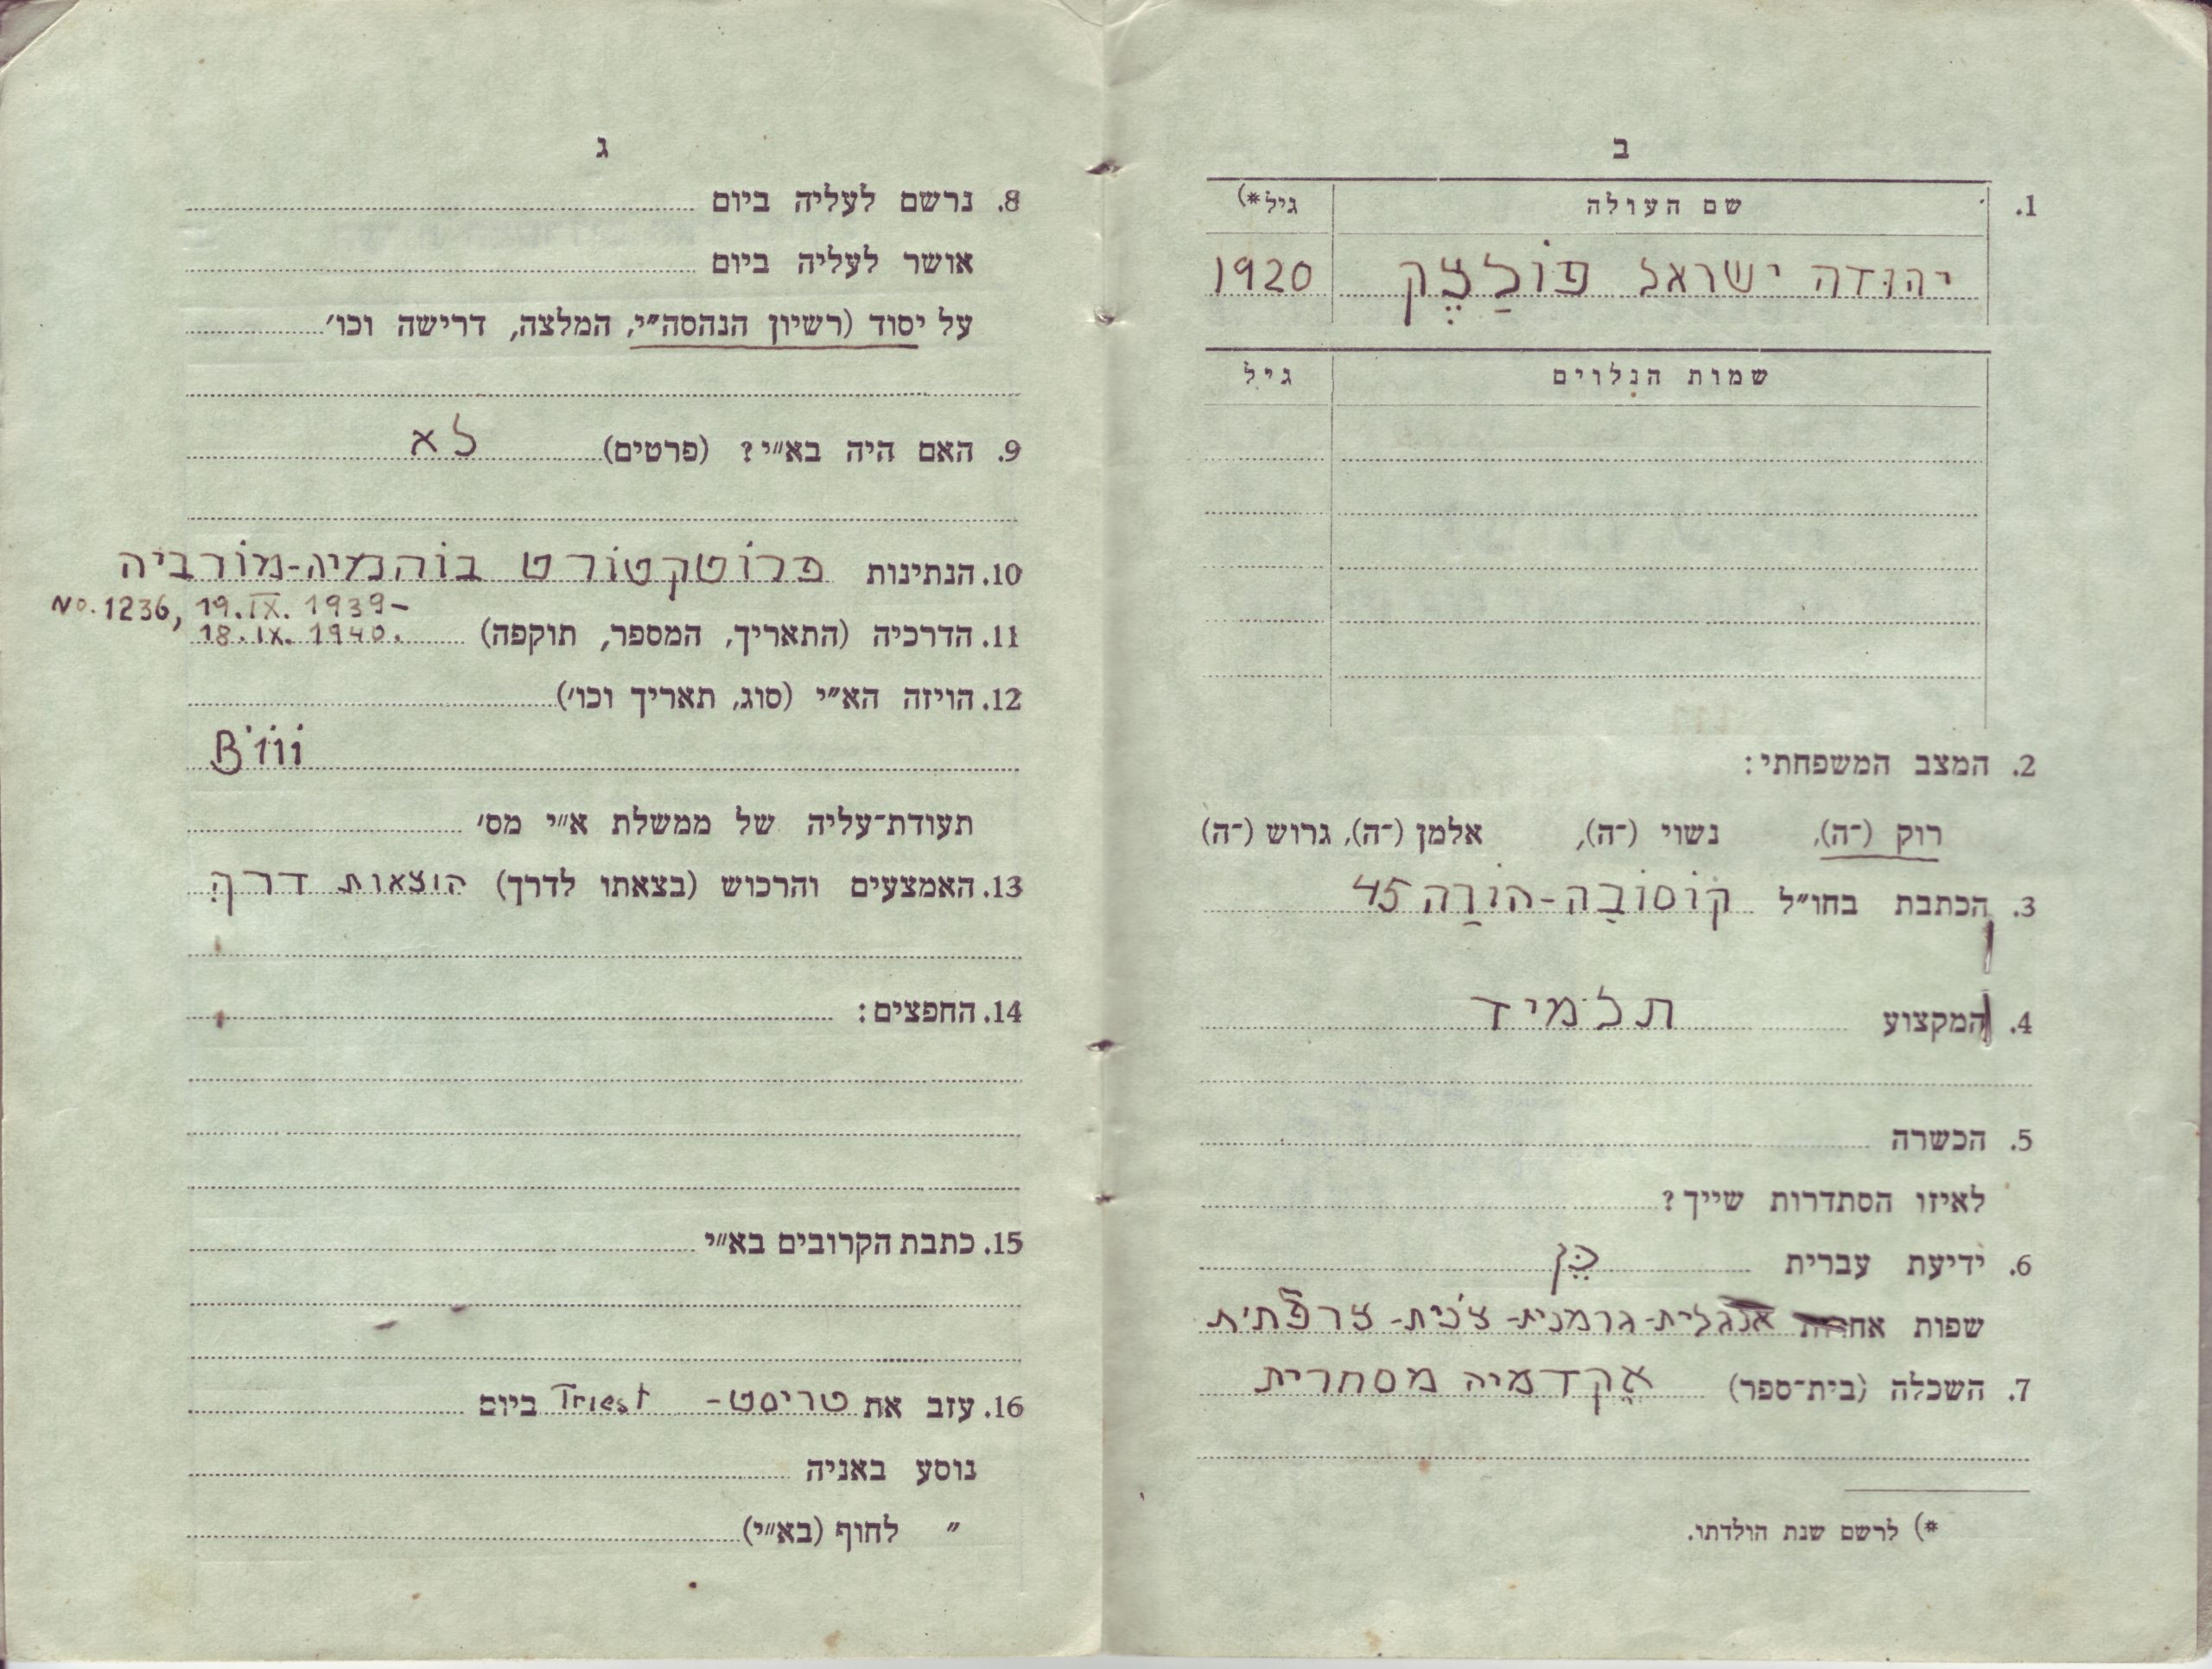 ב
1. שם העולה גיל*)
יהודה ישראל פוֹלַצֶק 1920
שמות הנלוים גיל
2. המצב המשפחתי:
רוק (־ה), נשוי (־ה), אלמן (־ה), גרוש (־ה)
3. הכתבת בחו״ל קוֹסוֹבַה-הוֹרַה 45
4. המקצוע תלמיד
5. הכשרה
לאיזו הסתדרות שייך?
6. ידיעת עברית כֵּן
שפות אחרות אנגלית-גרמנית-צ'כית-צרפתית
7. השכלה (בית־ספר) אָקָדמיה מסחרית
*) לרשם שנת הולדתו.
ג
8. נרשם לעליה ביום
אושר לעליה ביום
על יסוד (רשיון הנהסה״י, המלצה, דרישה וכו׳
9. האם היה בא״י? (פרטים) לא
10. הנתינות פרוֹטקטוֹרט בוֹהמיה-מוֹרביה
No. 1236, 19. IX. 1939-
11. הדרכיה (התאריך, המספר, תוקפה) 18. IX. 1940.
12. הויזה הא״י (סוג, תאריך וכו׳)
B iii
תעודת־עליה של ממשלת א״י מס׳
13. האמצעים והרכוש (בצאתו לדרך) הוצאות דרך
14. החפצים:
15. כתבת הקרובים בא״י
16. עזב את טריסט- Triest ביום
נוסע באניה
״ לחוף (בא״י)